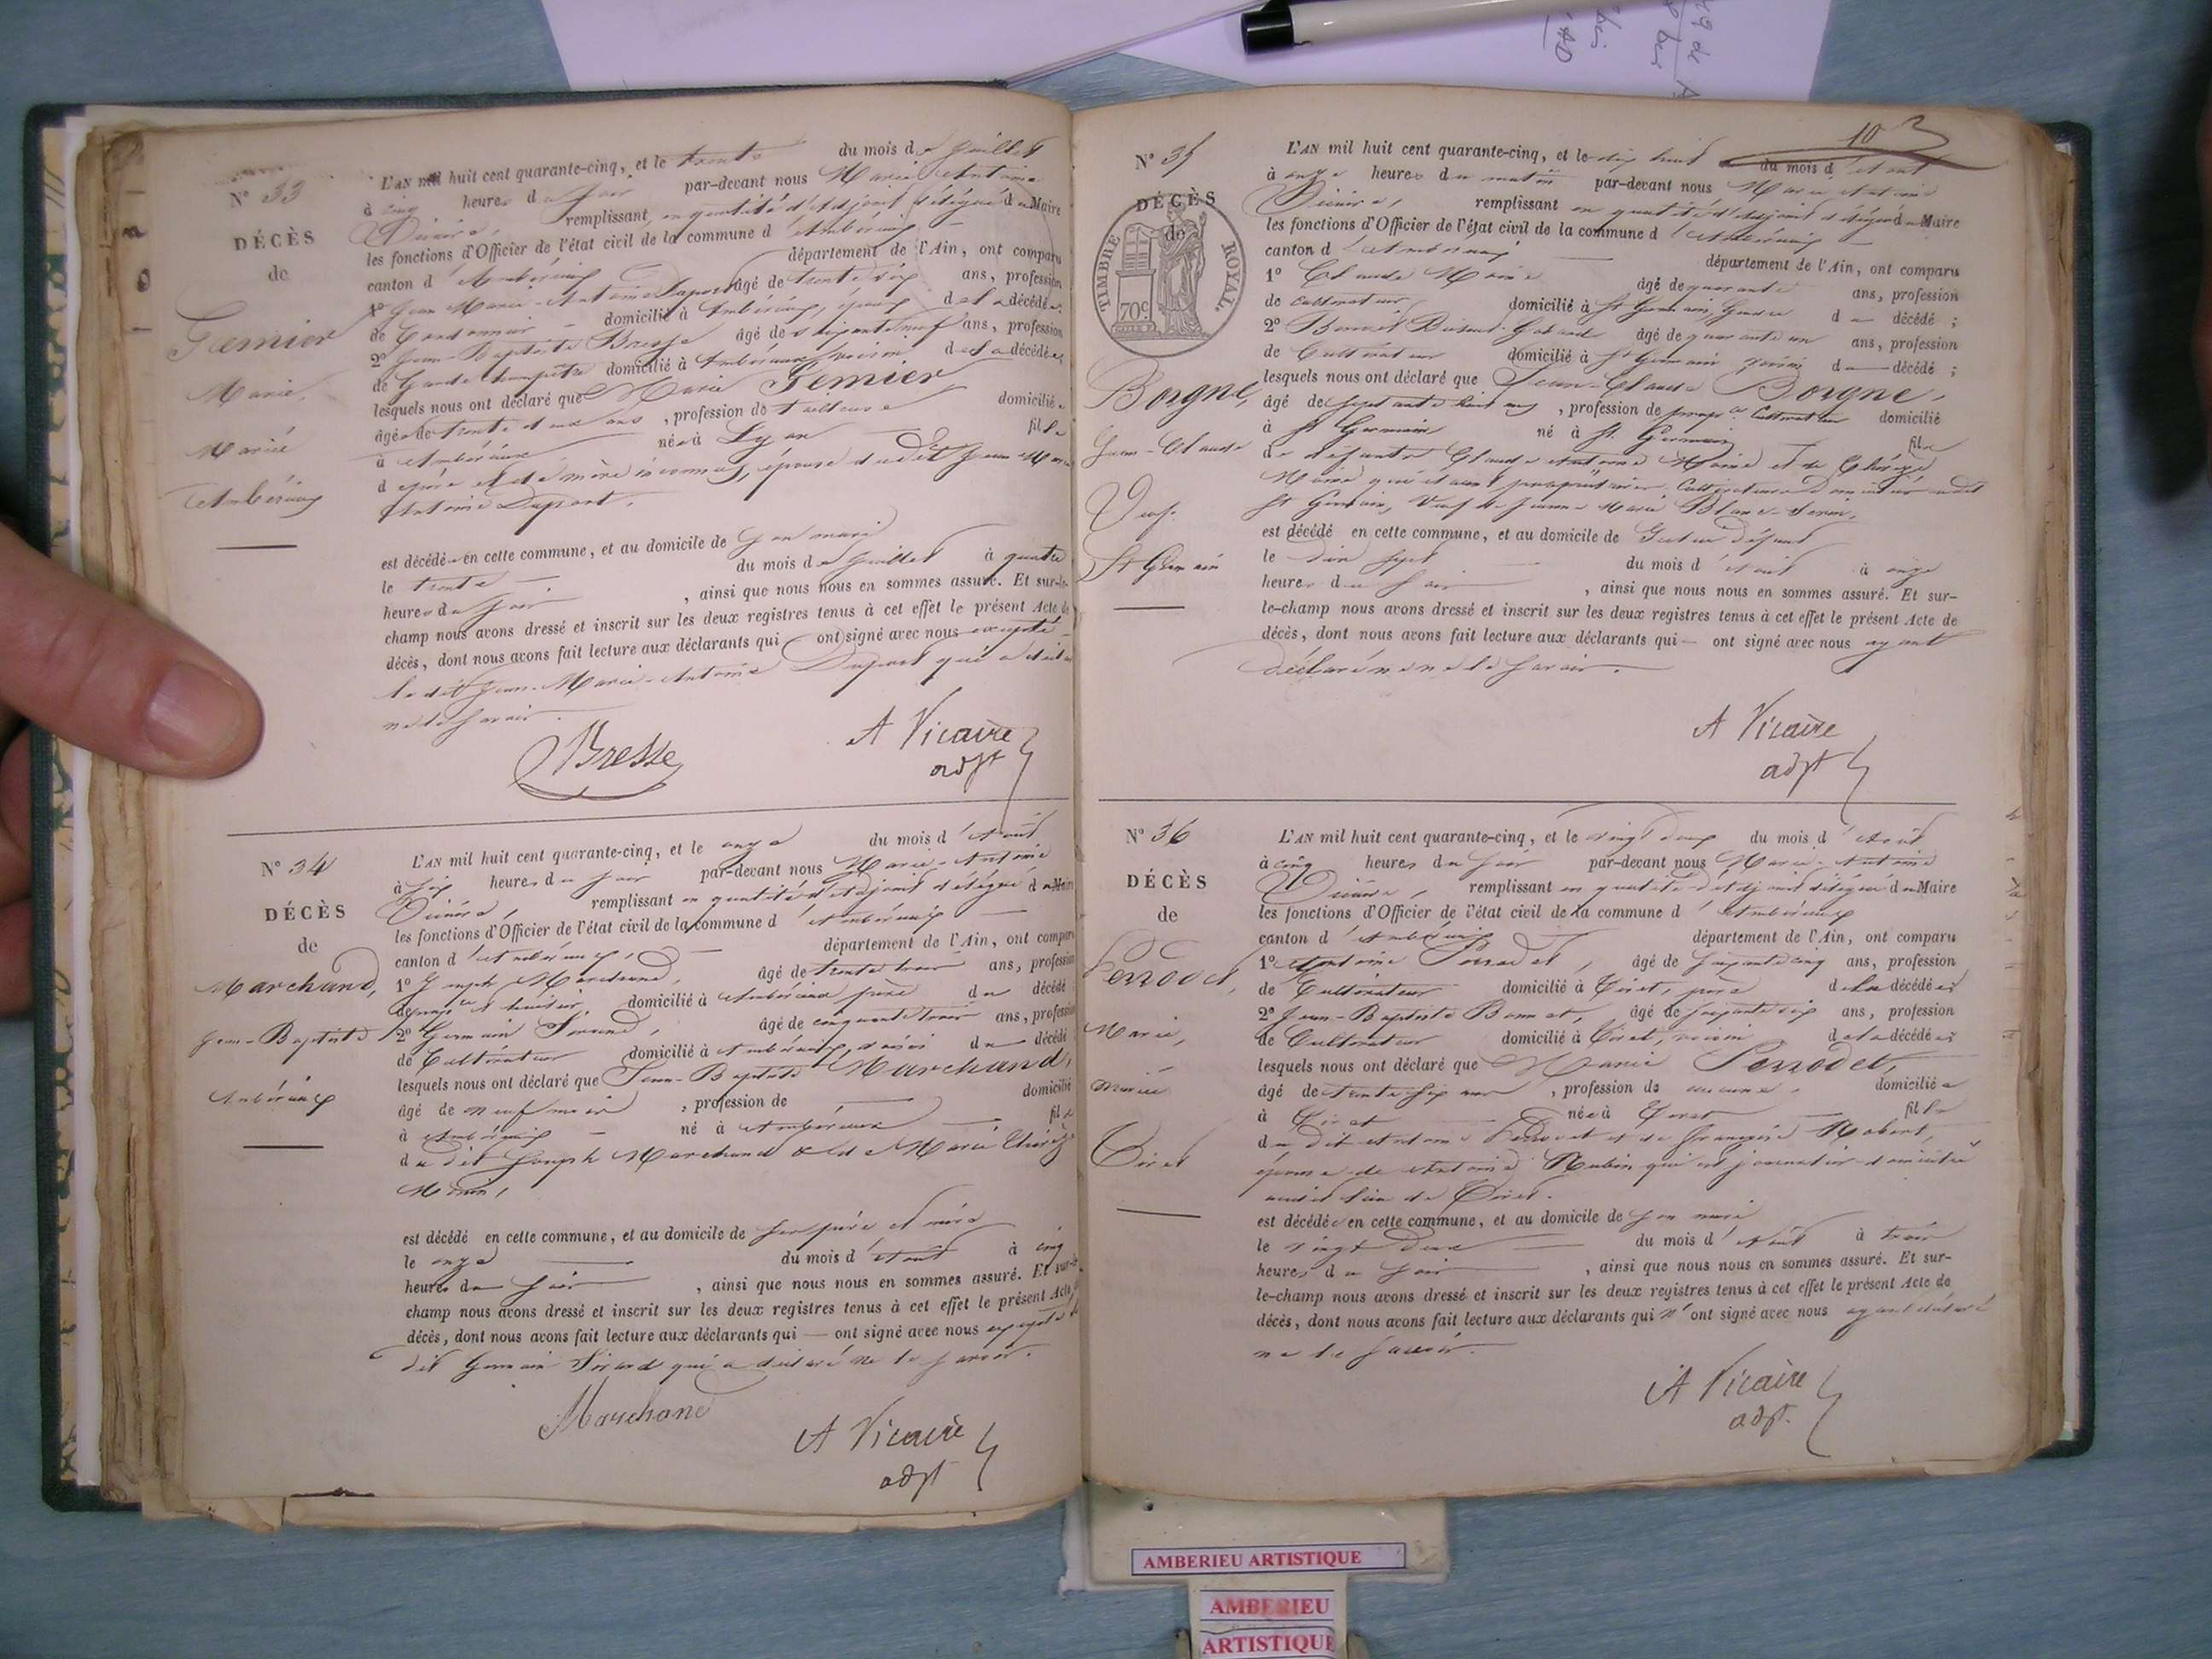 N° 33
DÉCÈS
de
Gemier
Marie,
Mariée
Ambérieux
L'AN mil huit cent quarante-cinq, et le trente du mois de Juillet
à cinq heures du soir par-devant nous Marie Antoine
remplissant en qualité d'Adjoint délégué du Maire
les fonctions d'Officier de l'état civil de la commune d'Ambérieux
canton d'Ambérieux département de l'Ain, ont comparu
1° Jean Marie-Antoine Duport âgé de trente six ans, profession
de Cordonnier domicilié à Ambérieux, époux de la décédée;
2° Jean-Baptiste Bresse âgé de soixante neuf ans, profession
de Garde champêtre domicilié à Ambérieux, voisin de la décédée;
lesquels nous ont déclaré que Marie Gemier
âgée de trente deux ans, profession de tailleuse domiciliée
à Ambérieux née à Lyon fille
de père et de mère inconnus, épouse du dit Jean Marie
Antoine Duport.
est décédée en cette commune, et au domicile de son mari
le trente du mois de Juillet à quatre
heures du soir, ainsi que nous nous en sommes assuré. Et sur-le-
champ nous avons dressé et inscrit sur les deux registres tenus à cet effet le présent Acte de
décès, dont nous avons fait lecture aux déclarants qui ont signé avec nous excepté
le dit Jean-Marie-Antoine Duport qui a déclaré
ne le savoir.
Bresse
A Vicaire
adjt
N° 34
DÉCÈS
de
Marchand,
Jean-Baptiste
Ambérieux
L'AN mil huit cent quarante-cinq, et le onze du mois d'Août
à six heures du soir par-devant nous Marie-Antoine
remplissant en qualité d'Adjoint délégué du Maire
les fonctions d'Officier de l'état civil de la commune d'Ambérieux
canton d'Ambérieux, département de l'Ain, ont comparu
1° Joseph Marchand, âgé de trente trois ans, profession
domicilié à Ambérieux père du décédé
2° Germain Sirand, âgé de cinquante trois ans, profession
de Cultivateur domicilié à Ambérieux, voisin du décédé
lesquels nous ont déclaré que Jean-Baptiste Marchand,
âgé de neuf mois, profession de domicilié
à Ambérieux né à Ambérieux fils
du dit Joseph Marchand et de Marie Thérèse
est décédé en cette commune, et au domicile de ses père et mère
le onze du mois d'Août à cinq
heures du soir, ainsi que nous nous en sommes assuré. Et sur-le-
champ nous avons dressé et inscrit sur les deux registres tenus à cet effet le présent Acte
décès, dont nous avons fait lecture aux déclarants qui — ont signé avec nous excepté le
dit Germain Sirand qui a déclaré ne le savoir.
Marchand
A Vicaire
adjt
103
N° 35
DÉCÈS
de
TIMBRE ROYAL.
70c
Borgne,
Jean-Claude
Veuf.
St Germain
L'AN mil huit cent quarante-cinq, et le dix huit du mois d'Août
à onze heures du matin par-devant nous Marie Antoine
remplissant en qualité d'Adjoint délégué du Maire
les fonctions d'Officier de l'état civil de la commune d'Ambérieux
canton d'Ambérieux département de l'Ain, ont comparu
1° Claude âgé de quarante ans, profession
de cultivateur domicilié à St Germain, Gendre du décédé;
2° Benoit âgé de quarante un ans, profession
de Cultivateur domicilié à St Germain voisin du décédé;
lesquels nous ont déclaré que Jean-Claude Borgne,
âgé de septante huit ans, profession de propre Cultivateur domicilié
à St Germain né à St. Germain fils
de défunts Claude Antoine et de
qui étaient propriétaires Cultivateurs domiciliés audit
St Germain, Veuf de Jeanne-Marie
est décédé en cette commune, et au domicile de défunt
le dix sept du mois d'Août à onze
heures du soir, ainsi que nous nous en sommes assuré. Et sur-
le-champ nous avons dressé et inscrit sur les deux registres tenus à cet effet le présent Acte de
décès, dont nous avons fait lecture aux déclarants qui — ont signé avec nous ayant
déclaré ne le savoir.
A Vicaire
adjt
N° 36
DÉCÈS
de
Perrodet,
Marie,
Mariée
Tiret
L'AN mil huit cent quarante-cinq, et le vingt deux du mois d'Août
à cinq heures du soir par-devant nous Marie-Antoine
remplissant en qualité d'Adjoint délégué du Maire
les fonctions d'Officier de l'état civil de la commune d'Ambérieux
canton d'Ambérieux département de l'Ain, ont comparu
1° Antoine Perrodet, âgé de soixante cinq ans, profession
de Cultivateur domicilié à Tiret, père de la décédée;
2° Jean-Baptiste Bonnet, âgé de soixante six ans, profession
de Cultivateur domicilié à Tiret, voisin de la décédée;
lesquels nous ont déclaré que Marie Perrodet,
âgée de trente six ans, profession de aucune, domiciliée
à Tiret née à Tiret fille
du dit Antoine Perrodet et de Françoise
épouse de Antoine Rubin qui est journalier domicilié
audit lieu de Tiret.
est décédée en cette commune, et au domicile de son mari
le vingt deux du mois d'Août à trois
heures du soir, ainsi que nous nous en sommes assuré. Et sur-
le-champ nous avons dressé et inscrit sur les deux registres tenus à cet effet le présent Acte de
décès, dont nous avons fait lecture aux déclarants qui n'ont signé avec nous ayant déclaré
ne le savoir.
A Vicaire
adjt.
AMBERIEU ARTISTIQUE
AMBERIEU
ARTISTIQUE